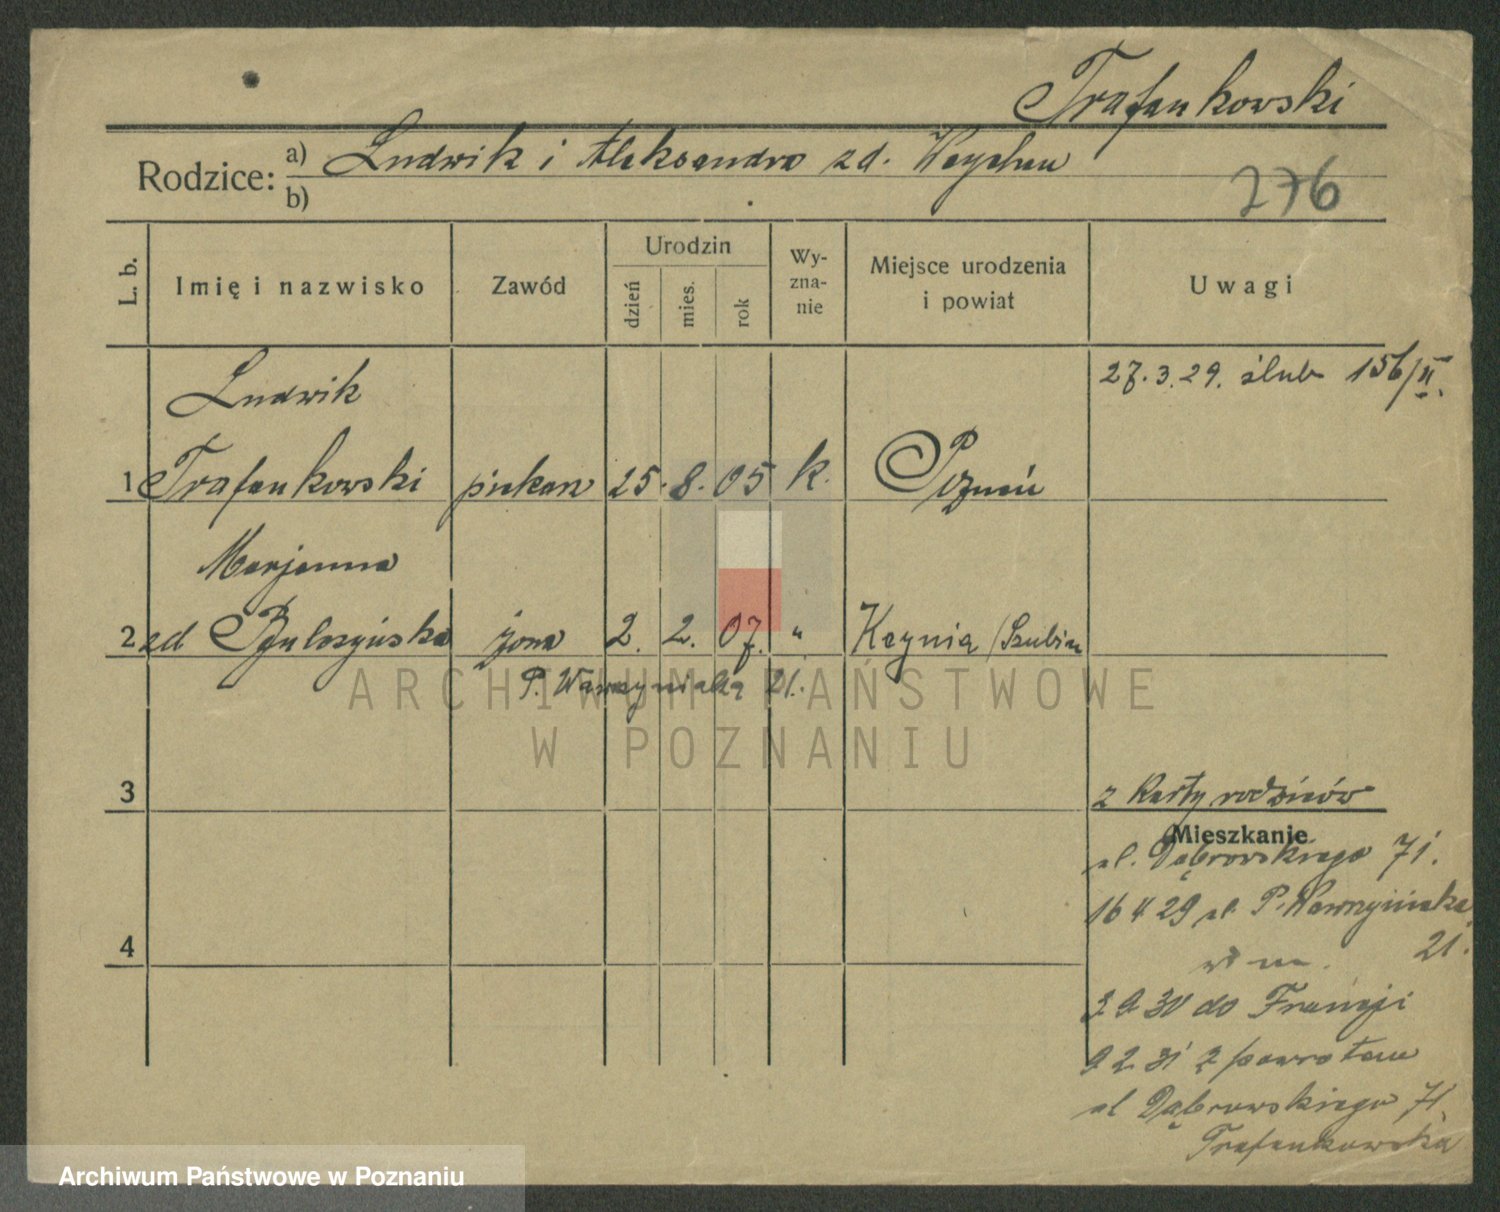 Trafankowski
Rodzice: a) Ludwik i Aleksandra zd.
b)
276
L. b.
Imię i nazwisko
Zawód
Urodzin
dzień
mies.
rok
Wy-
zna-
nie
Miejsce urodzenia
i powiat
Uwagi
27.3.29. ślub 156/II.
Ludwik
1 Trafankowski piekarz 25. 8. 05 k. Poznań
Marjanna
2 zd żona 2. 2. 07. " Kcynia /Szubin
P. Wawrzyniaka 21.
ARCHIWUM PAŃSTWOWE
W POZNANIU
3
z karty rodziców
Mieszkanie
ul. Dąbrowskiego 71.
16 4 29 ul. P. Wawrzyniaka
21.
w m.
2 9 30 do Francji
9 2 31 z powrotem
ul Dąbrowskiego 71
Trafankowska
4
Archiwum Państwowe w Poznaniu